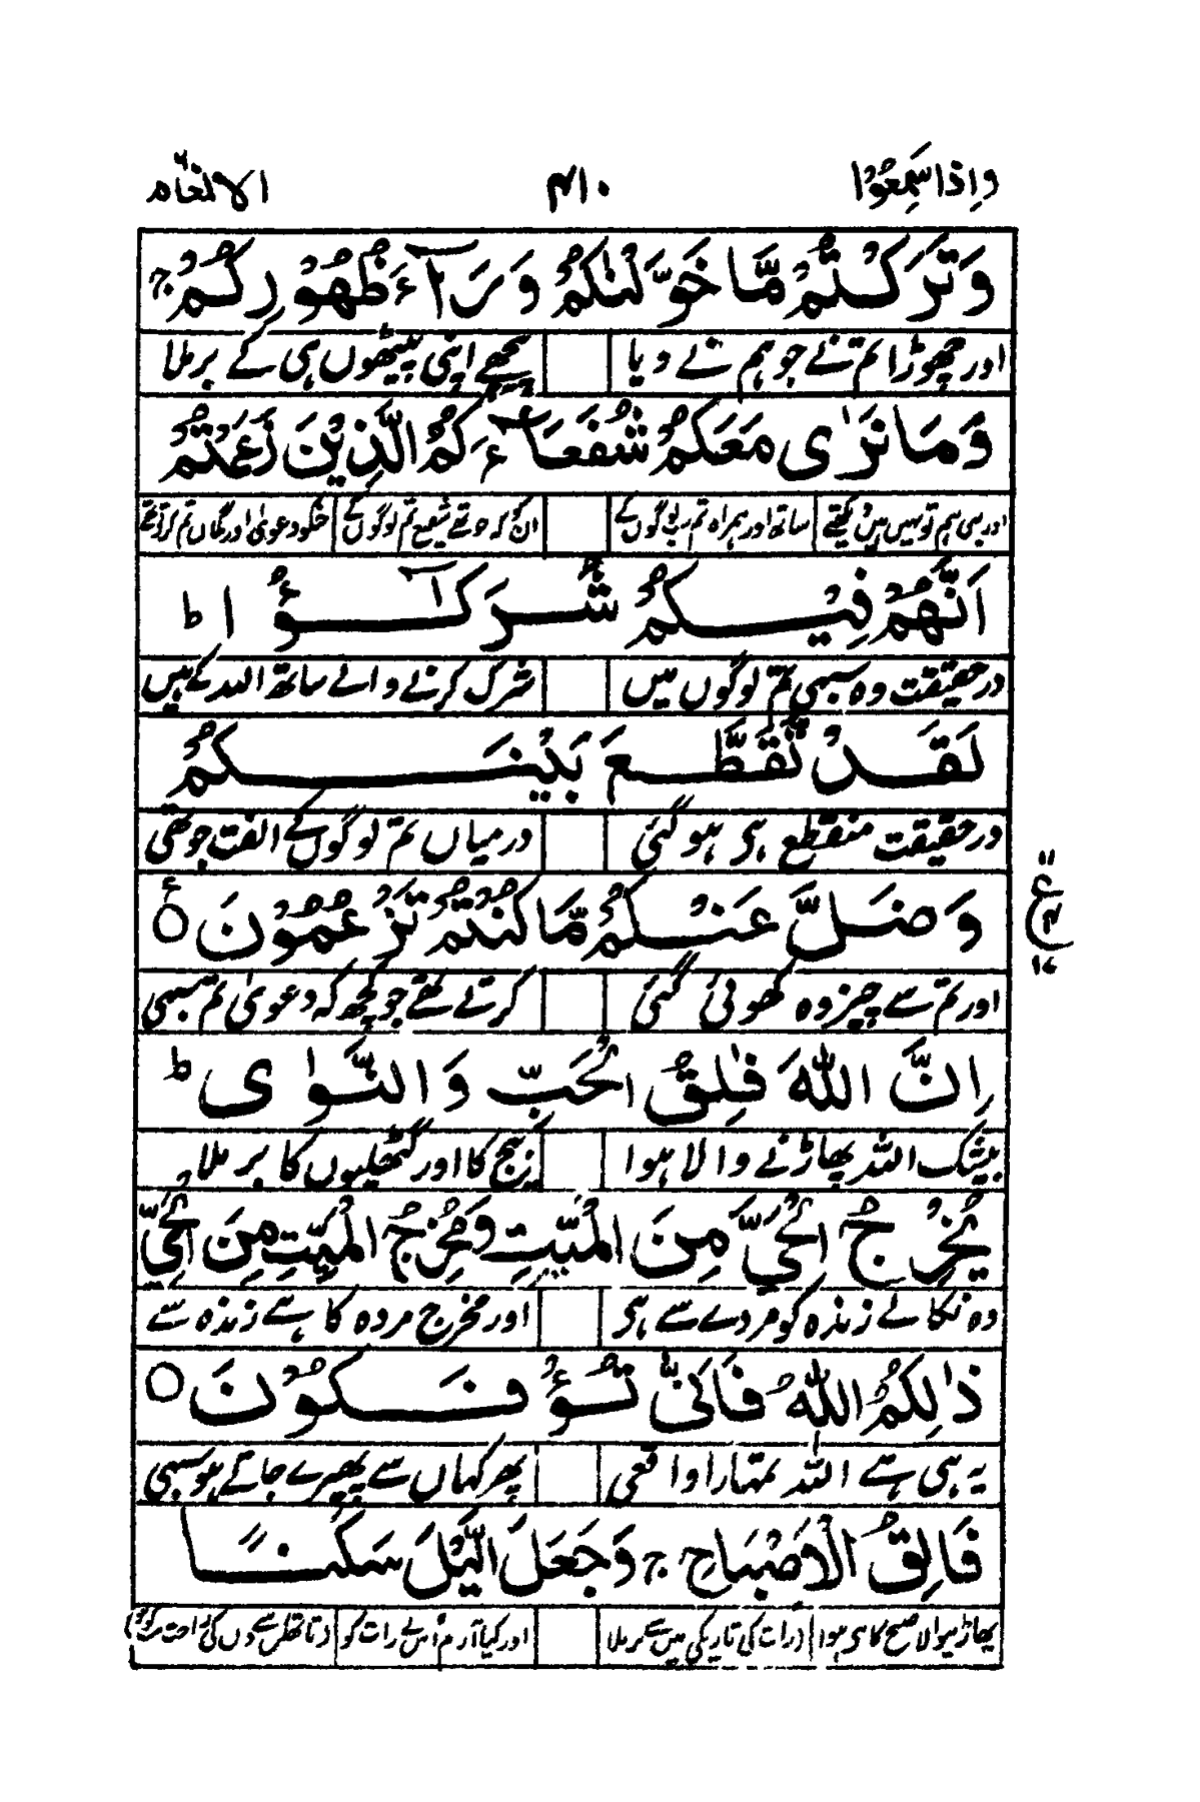 واذا سمعوا ۴۱۰ الانعام ۶
وَتَرَكْتُمْ مَّا خَوَّلْنٰكُمْ وَرَآءَ ظُهُوْرِكُمْ ۚ
اور چھوڑا تم نے جو ہم نے دیا پیچھے اپنی پیٹھوں ہی کے برملا
وَمَا نَرٰى مَعَكُمْ شُفَعَآءَكُمُ الَّذِيْنَ زَعَمْتُمْ
ساتھ اور ہمراہ تم لوگوں کے شفیع تم لوگوں کے جنکو دعویٰ اور گماں تم کرتے تھے
اَنَّهُمْ فِيْكُمْ شُرَكٰٓؤُا ؕ
درحقیقت وہ سبھی تم لوگوں میں شرک کرنے والے ساتھ اللہ کے ہیں
لَقَدْ تَّقَطَّعَ بَيْنَكُمْ
درحقیقت منقطع ہی ہو گئی درمیاں تم لوگوں کے الفت جو تھی
وَضَلَّ عَنْكُمْ مَّا كُنْتُمْ تَزْعُمُوْنَ ۝ ع
۱۱ ع ۴ ۱۷
اور تم سے چیز وہ کھوئی گئی کرتے تھے جو کچھ کہ دعویٰ تم سبھی
اِنَّ اللّٰهَ فٰلِقُ الْحَبِّ وَالنَّوٰى ؕ
بیشک اللہ پھاڑنے والا ہوا بیج کا اور گٹھلیوں کا برملا
يُخْرِجُ الْحَيَّ مِنَ الْمَيِّتِ وَمُخْرِجُ الْمَيِّتِ مِنَ الْحَيِّ
وہ نکالے زندہ کو مردے سے ہی اور مخرج مردہ کا ہے زندہ سے
ذٰلِكُمُ اللّٰهُ فَاَنّٰى تُؤْفَكُوْنَ ۝
یہ ہی ہے اللہ تمہارا واقعی پھر کہاں سے پھیرے جاتے ہو سبھی
فَالِقُ الْاِصْبَاحِ ۚ وَجَعَلَ الَّيْلَ سَكَنًا
پھاڑنیوالا صبح کا ہی ہوا رات کی تاریکی میں سے برملا اور کیا آرام اس نے رات کو